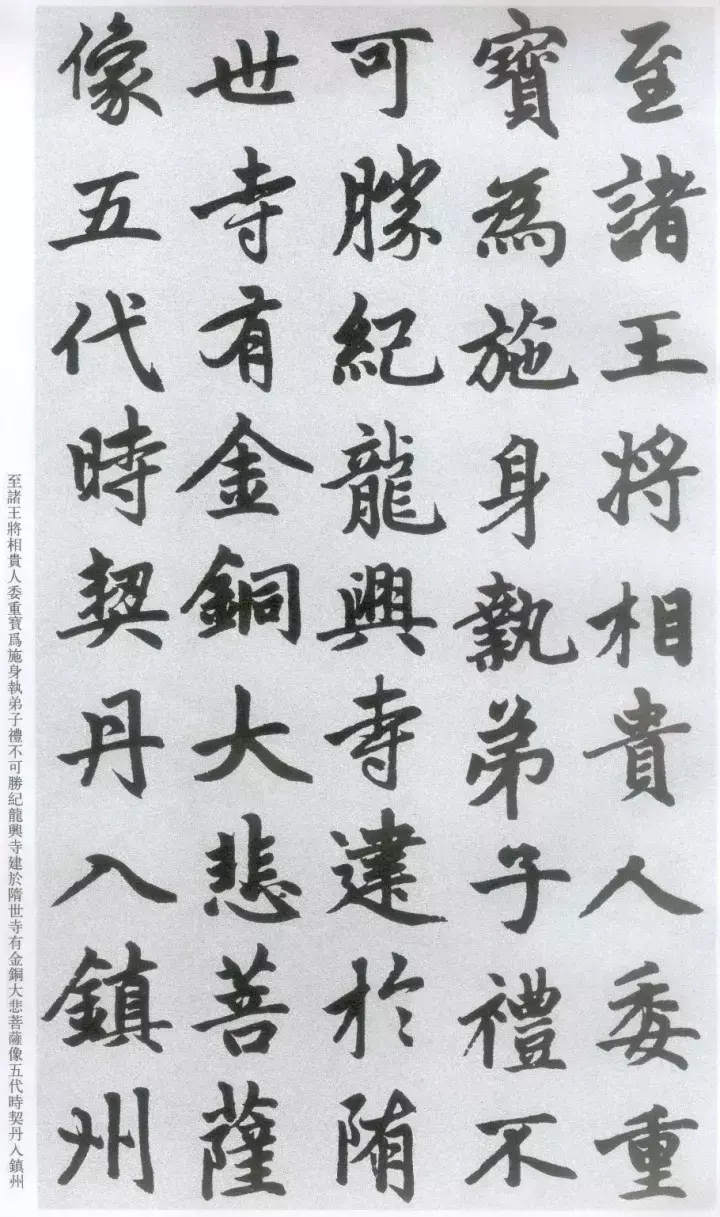 至諸王将相貴人委重
寶為施身執弟子禮不
可勝紀龍興寺建於隋
世寺有金銅大悲菩薩
像五代時契丹入鎮州
至諸王將相貴人委重寶爲施身執弟子禮不可勝紀龍興寺建於隋世寺有金銅大悲菩薩像五代時契丹入鎮州